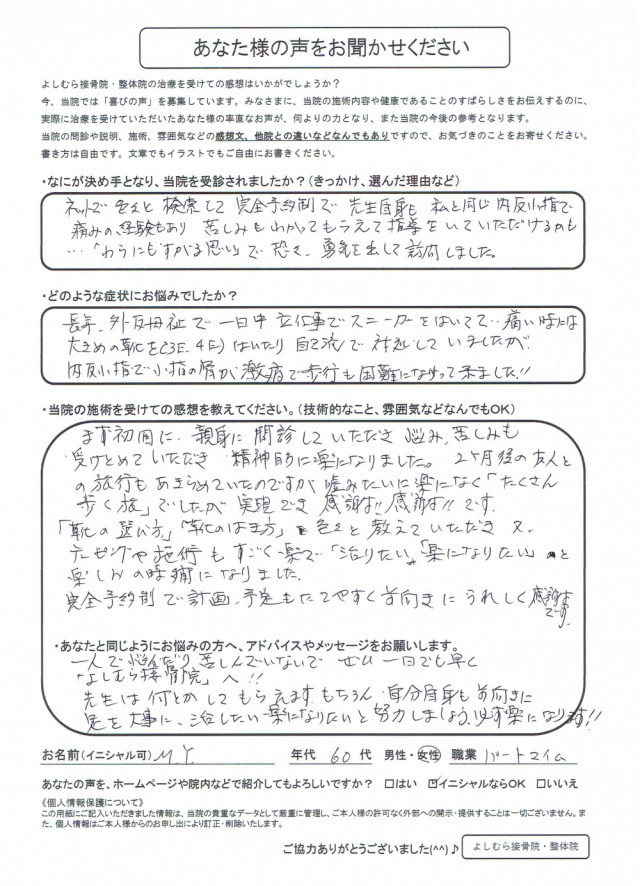 あなた様の声をお聞かせください
よしむら接骨院・整体院の治療を受けての感想はいかがでしょうか？
今、当院では「喜びの声」を募集しています。みなさまに、当院の施術内容や健康であることのすばらしさをお伝えするのに、
実際に治療を受けていただいたあなた様の率直なお声が、何よりの力となり、また当院の今後の参考となります。
当院の問診や説明、施術、雰囲気などの感想文、他院との違いなどなんでもありですので、お気づきのことをお寄せください。
書き方は自由です。文章でもイラストでもご自由にお書きください。
・なにが決め手となり、当院を受診されましたか？（きっかけ、選んだ理由など）
ネットで色々と検索して 完全予約制で 先生自身も 私と同じ内反小指で
痛みの経験もあり 苦しみもわかってもらえて指導をしていただけるかも
…「わらにもすがる思い」で恐々、勇気を出して訪問しました。
・どのような症状にお悩みでしたか？
長年、外反母趾で一日中 立仕事でスニーカーをはいてて…痛い時には
大きめの靴を(3E、4E)はいたり自己流で対処していましたが
内反小指で小指の骨が激痛で歩行も困難になって来ました!!
・当院の施術を受けての感想を教えてください。（技術的なこと、雰囲気などなんでもOK）
まず初回に、親身に問診していただき悩み、苦しみも
受けとめていただき 精神的に楽になりました。2ヶ月後の友人と
の旅行もあきらめていたのですが嘘みたいに楽になく「たくさん
歩く旅」でしたが実現でき 感謝!!感謝!!です.
「靴の選び方」「靴のはき方」色々と教えていただき又、
テーピングや施術もすごく楽で「治りたい」「楽になりたい」と
楽しみの時間になりました.
完全予約制で計画、予定もたてやすく前向きにうれしく感謝
です.
・あなたと同じようにお悩みの方へ、アドバイスやメッセージをお願いします。
一人で悩んだり苦しんでいないで ぜひ 一日でも早く
「よしむら接骨院」へ!!
先生は何とかしてもらえます もちろん自分自身も前向きに
足を大事に、治したい楽になりたいと努力しましょう、必ず楽になります!!
お名前（イニシャル可） M.Y. 年代 60代 男性・女性 職業 パートタイム
あなたの声を、ホームページや院内などで紹介してもよろしいですか？ □はい ☑イニシャルならOK □いいえ
《個人情報保護について》
この用紙にご記入いただきました情報は、当院の貴重なデータとして厳重に管理し、ご本人様の許可なく外部への開示・提供することは一切ございません。ま
た、個人情報はご本人様からのお申し出により訂正・削除いたします。
ご協力ありがとうございました(^^)♪ よしむら接骨院・整体院